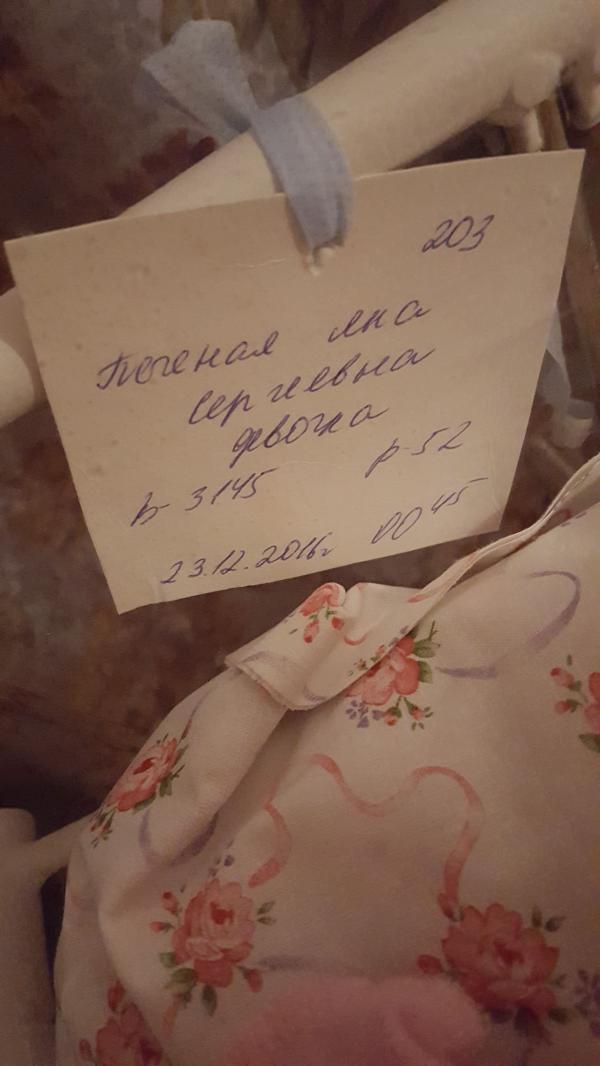 203
Печеная Яна
Сергеевна
девочка
в-3145 р-52
23.12.2016г 00 45